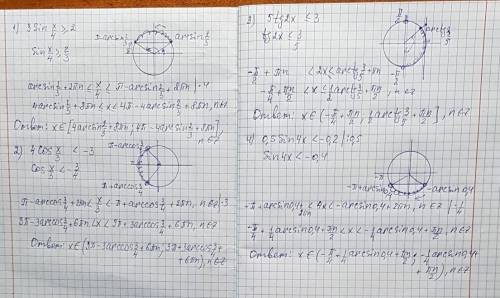 1) 3 sin x/4 ≥ 2
sin x/4 ≥ 2/3
π-arcsin 2/3 arcsin 2/3
arcsin 2/3 + 2πn < x/4 < π - arcsin 2/3 + 2πn | ·4
4 arcsin 2/3 + 8πn < x < 4π - 4 arcsin 2/3 + 8πn, n∈z
Ответ: x∈[4 arcsin 2/3 + 8πn; 4π - 4 arcsin 2/3 + 8πn], n∈z
2) 4 cos x/3 < -3
cos x/3 < -3/4
π-arccos 3/4
π+arccos 3/4
π - arccos 3/4 + 2πn < x/3 < π + arccos 3/4 + 2πn, n∈z | ·3
3π - 3 arccos 3/4 + 6πn < x < 3π + 3 arccos 3/4 + 6πn, n∈z
Ответ: x∈(3π - 3 arccos 3/4 + 6πn; 3π + 3 arccos 3/4 +
+ 6πn), n∈z
3) 5 tg 2x ≤ 3
tg 2x ≤ 3/5
π/2
arctg 3/5
-π/2
-π/2 + πn < 2x < arctg 3/5 + πn
-π/4 + πn/2 < x < 1/2 arctg 3/5 + πn/2, n∈z
Ответ: x∈(-π/4 + πn/2; 1/2 arctg 3/5 + πn/2], n∈z
4) 0,5 sin 4x < -0,2 | :0,5
sin 4x < -0,4
-π+arcsin 0,4 -arcsin 0,4
-π + arcsin 0,4 + 2πn < 4x < -arcsin 0,4 + 2πn, n∈z | ·1/4
-π/4 + 1/4 arcsin 0,4 + πn/2 < x < -1/4 arcsin 0,4 + πn/2, n∈z
Ответ: x∈(-π/4 + 1/4 arcsin 0,4 + πn/2; -1/4 arcsin 0,4 +
+ πn/2), n∈z